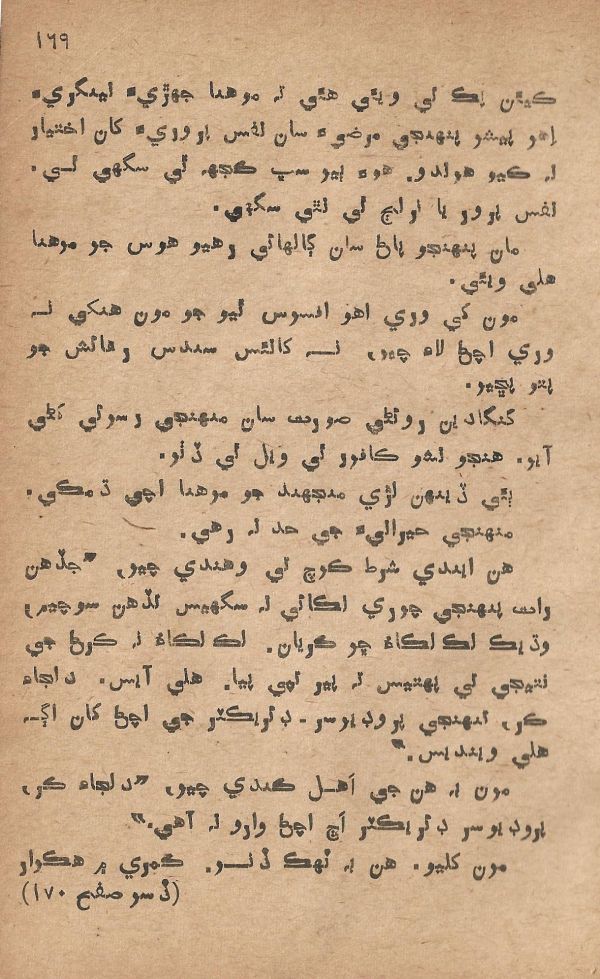 ١٦٩
ڪيئن ٻڪ ٿي ويئي هئي ته موهنا جهڙيءَ ڀينگريءَ
اهو پيشو پنهنجي مرضيءَ سان نفس پروريءَ کان اختيار
نه ڪيو هوندو. هوءَ ٻيو سڀ ڪجهه ٿي سگهي ٿي.
نفس پرور يا لالچي ٿي نٿي سگهي.
مان پنهنجو پاڻ سان ڳالهائي رهيو هوس جو موهنا
هلي ويئي.
مون کي وري اهو افسوس ٿيو جو مون هنکي نه
وري اچڻ لاءِ چيو، نه کانئس سندس رهائش جو
پتو پڇيو.
گنگادين روئڻي صورت سان منهنجي رسوئي کڻي
آيو. هنجو نشو ڪافور ٿي ويل ٿي ڏٺو.
ٻئي ڏينهن لڙي منجهند جو موهنا اچي ڌمڪي.
منهنجي حيرانيءَ جي حد نه رهي.
هن ايندي شرط ڪوچ تي وهندي چيو، ”جڏهن
رات پنهنجي چوري لڪائي نه سگهيس تڏهن سوچيم،
وڌيڪ لڪ لڪاءُ ڇو ڪريان. لڪ لڪاءُ نه ڪرڻ جي
نتيجي تي پهتيس ته پير نچي پيا. هلي آيس. دلجاءِ
ڪر، تنهنجي پروڊيوسر - ڊئريڪٽر جي اچڻ کان اڳـ
هلي وينديس.“
مون به هن جي آهل ڪندي چيو، ”دلجاءِ ڪر،
پروڊيوسر ڊئريڪٽر اڄ اچڻ وارو نه آهي.“
مون کليو. هن به ٽهڪ ڏنو. ڪمري ۾ هڪوار
(ڏسو صفحه ١٧٠)